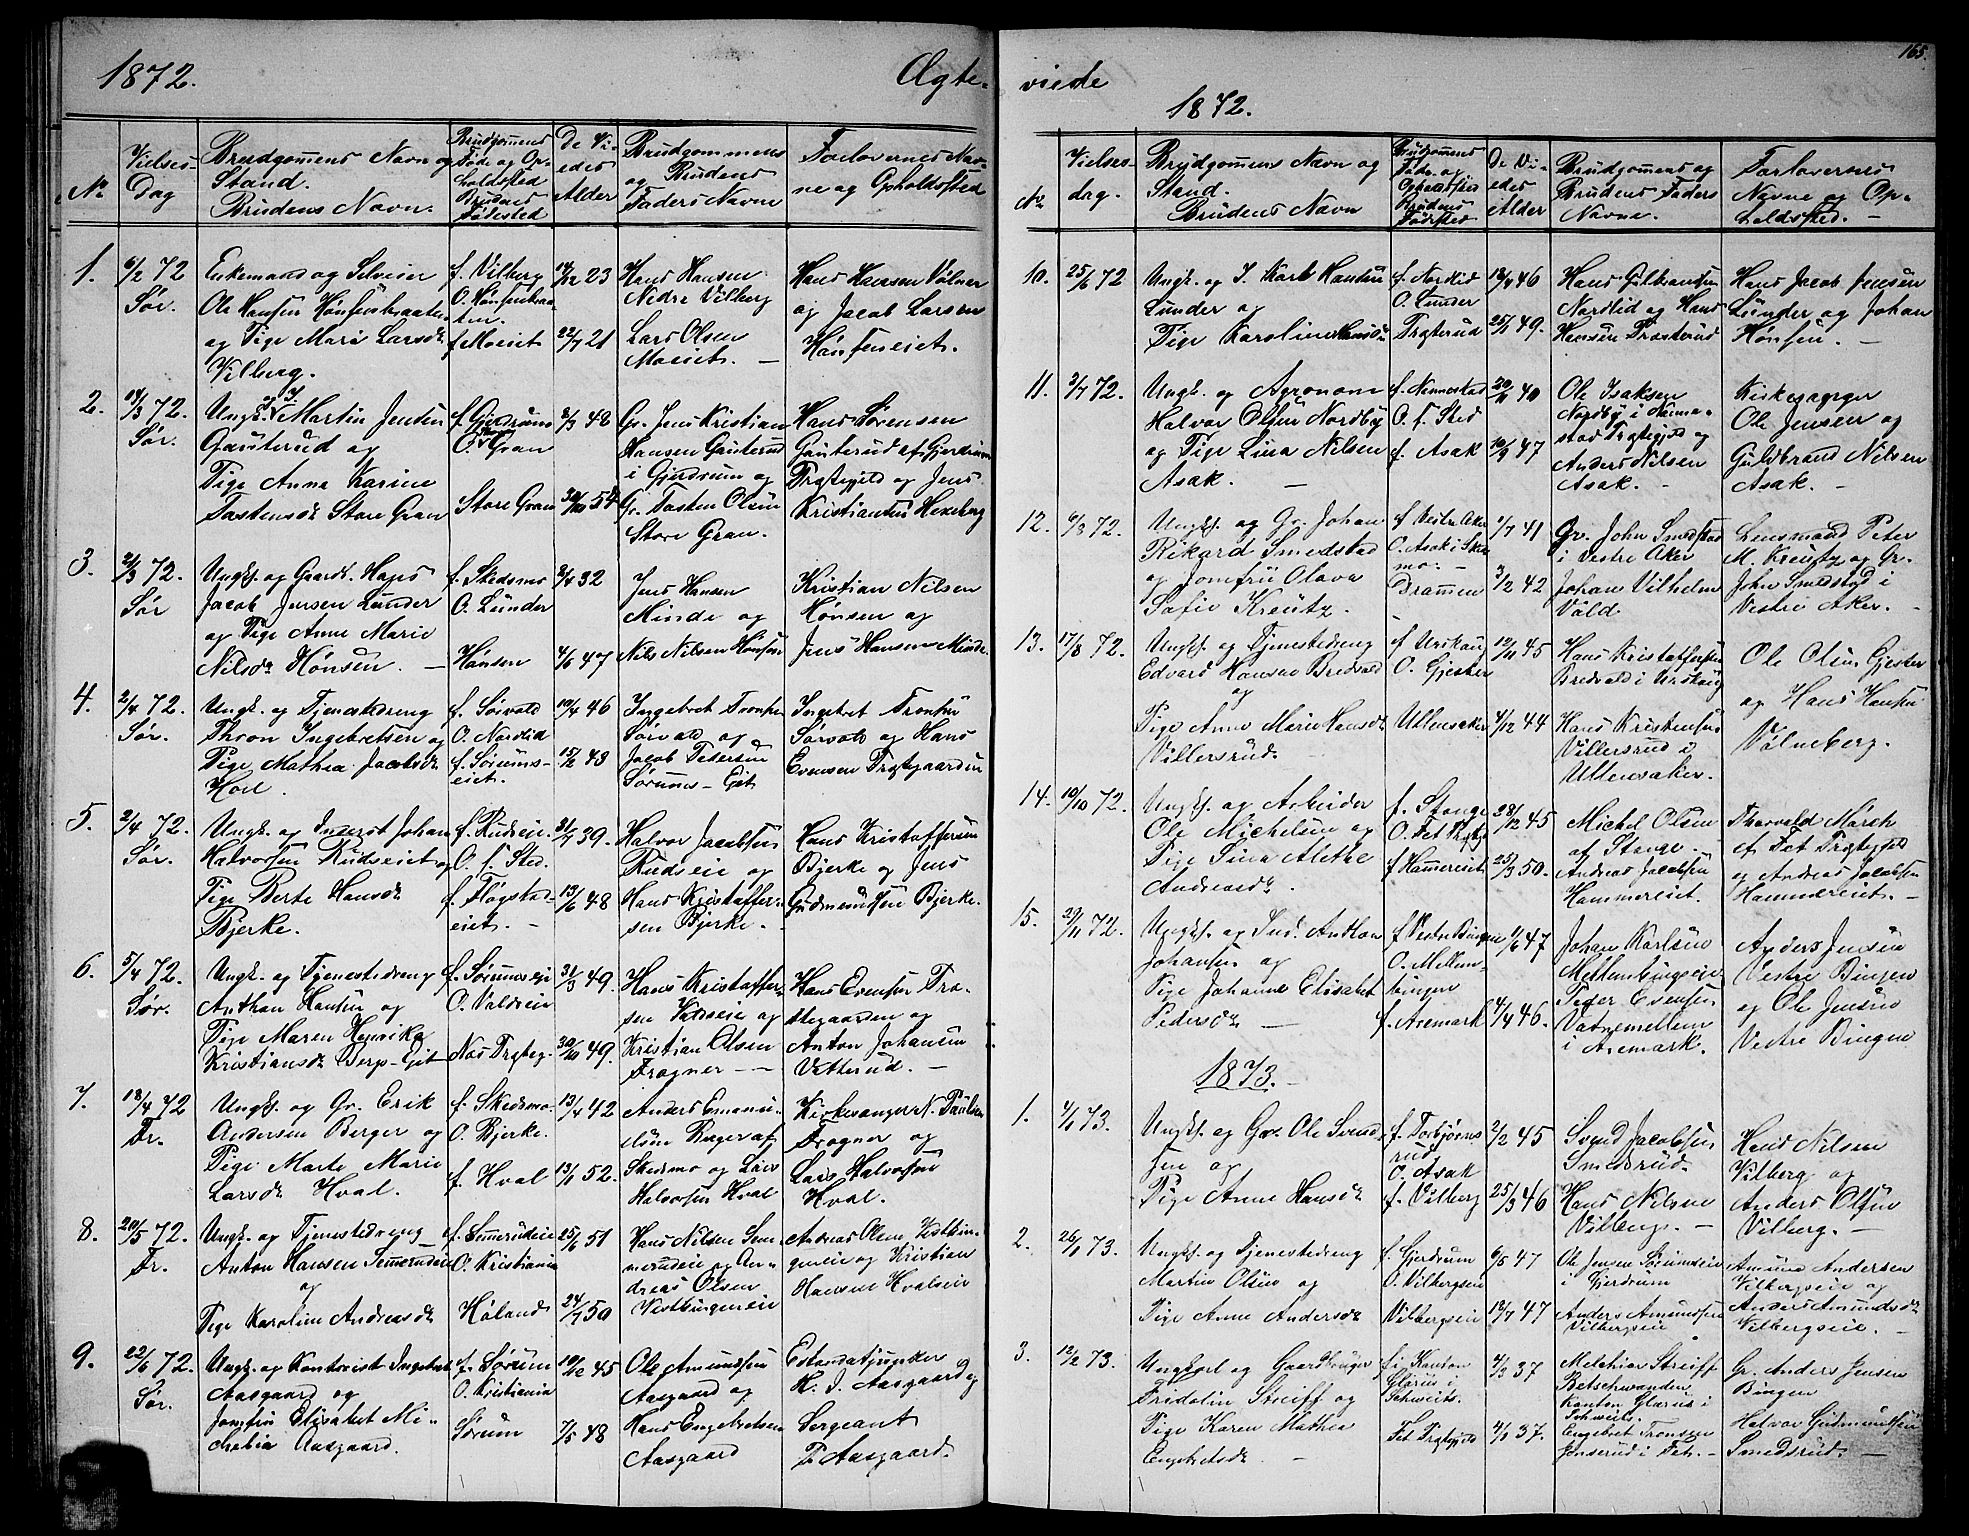 165.
1872. Ægte-
No
Vielses-
Dag
Brudgommens Navn og
Stand.
Brudens Navn.
Brudgommens
Føde og Op-
holdssted
Brudens
Fødested
De Vi-
edes
Alder
Brudgommens
og Brudens
Faders Navne
Forlovernes Nav-
ne og Opholdssted
1. 6/2 72
Sør.
Enkemand og Selveier
Ole Hansen Hønsenbraaten
og Pige Mari Larsdr
Vilberg.
f. Vilberg
O. Hønsenbraa-
ten.
f. Moeiet
14/12 23
22/7 21
Hans Hansen
Nedre Vilberg
Lars Olsen
Moeiet. —
Hans Hansen Vølner
og Jacob Larsen
Hønseneiet.
2. 14/3 72.
Sør.
Ungk. og I. Martin Jensen
Gauterud og
Pige Anna Karine
Tostensdr Store Gran
f. Gjerdrum
O. Store Gran
Store Gran
8/3 48
30/10 54
Gr. Jens Kristian
Hansen Gauterud
i Gjerdrum og
Gr. Tosten Olsen
Store Gran.
Hans Sørensen
Gauterud af Gjerdrum
Prstegjeld og Jens
Kristiansen Hexeberg
3. 21/3 72.
Sør
Ungk. og Gaardb. Hans
Jacob Jensen Lunder
og Pige Anne Marie
Nilsdr Hønsen. —
f. Skedsmo
O. Lunder
Hønsen
2/4 32
4/6 47
Jens Hansen
Minde og
Nils Nilsen Hønsen
Kristian Nilsen
Hønsen og
Jens Hansen Minde
4. 2/4 72.
Sør.
Ungk. og Tjenestedreng
Thron Ingebretsen og
Pige Mathea Jacobsdr
Hoel.
f. Sørvald
O. Nordlid
f. Sørums-
eiet.
10/4 46
15/2 43
Ingebret Tronsen
Sørvald og
Jacob Pedersen
Sørums-Eiet
Ingebret Tronsen
Sørvald og Hans
Evensen Prstegaarden
5. 2/4 72.
Sør.
Ungk. og Inderst Johan
Halvorsen Rudseiet og
Pige Berte Hansdr
Bjerke.
f. Rudseie.
O. f. Sted.
f. Flogstad-
eiet. -
31/7 39.
13/6 48
Halvor Jacobsen
Rudseie og
Hans Kristoffer-
sen Bjerke. -
Hans Kristoffersen
Bjerke og Jens
Gudmundsen Bjerke.
6. 5/4 72.
Sør.
Ungk. og Tjenestedreng
Anthon Hansen og
Pige Maren Henrika
Kristiansdr Bergs-Eiet
f. Sørumseie
O. Valdseie
Nes Prsteg.
31/3 49.
30/10 49.
Hans Kristoffer-
sen Valdseie og
Kristian Olsen
Frogner — —
Hans Evensen Præ-
stegaarden og
Anton Johansen
Vetterud. —
7. 18/4 72
Fr.
Ungk. og Gr. Erik
Andersen Berger og
Pige Marte Marie
Larsdr Hval.
f. Skedsmo.
O. Bjerke.
f. Hval
13/4 42
13/1 52.
Anders Emanu-
elsen Berger af
Skedsmo og Lars
Halvorsen Hval
Kirkesanger N. Paulsen
Frogner og
Lars Halvorsen
Hval.
8. 20/5 72.
Fr.
Ungk. og Tjenestedreng
Anton Hansen Semerudeie
og
Pige Karoline Andreasdr
f. Semerudeie
O. Kristiania
Høland
25/6 51
24/7 50
Hans Nilsen Sem-
merudeie og An-
dreas Olsen
Vestbingeneie
Andreas Olsen Vestbin-
geneie og Kristian
Hansen Hvalseie
9. 22/6 72.
Sør.
Ungk. og Kontorist Ingebret
Aasgaard og
Jomfru Elisabet Mi-
chabia Aasgaard.
f. Sørum
O. Kristiania
Sørum
10/12 45
7/5 48
Ole Amundsen
Aasgaard og
Hans Engebretsen
Aasgaard
Estandartjunker
H. J. Aasgaard og
Sergeant
P. Aasgaard.
viede
1872.
No
Vielses-
dag.
Brudgommens Navn og
Stand.
Brudens Navn
Brudgommens
Føde og
Opholdssted
Brudens
Fødested
De Vi-
edes
Alder
Brudgommens og
Brudens Faders
Navne.
Forlovernes
Navne og Op-
holdssted. —
10. 25/6 72
Ungk. og I. Karl Hansen
Lunder og
Pige Karoline Hansdr
f. Nordlid
O. Lunder
Prsterud
13/4 46
25/1 49.
Hans Gulbrandsen
Nordlid og Hans
Hansen Præsterud
Hans Jacob Jensen
Lunder og Johan
Hønsen. —
11. 3/7 72.
Ungk. og Agronom
Halvor Olsen Nordby
og Pige Lina Nilsen
Asak. —
f. Nannestad
O. f. Sted
f. Asak
20/11 40
10/9 47
Ole Isaksen
Nordby i Nanne-
stad Prstegjeld og
Anders Nilsen
Asak. -
Kirkesanger
Ole Jensen og
Guldbrand Nilsen
Asak. -
12. 6/8 72.
Ungk. og Gr. Johan
Rikard Smedstad
og Jomfru Olava
Sofie Kreutz.
f. Vestre Aker
O. Asak i Skeds-
mo. -
Drammen
1/7 41
3/2 42
Gr. John Smedstad
i Vestre Aker
Johan Vilhelm
Vold.
Lensmand Peter
M. Kreutz og Gr.
John Smedstad i
Vestre Aker. -
13. 17/8 72.
Ungk. og Tjenestedreng
Edvard Hansen Bredvold
og
Pige Anne Marie Hansdr
Villersrud.
f. Urskoug
O. Gjester
Ullensaker
12/11 45
4/12 44
Hans Kristoffersen
Bredvold i Urskoug
Hans Kristensen
Villersrud i
Ullensaker.
Ole Olsen Gjester
og Hans Hansen
Vølneberg.
14. 10/10 72.
Ungk. og Arbeider
Ole Michelsen og
Pige Lina Alethe
Andreasdr.
f. Stange
O. Fet Prstg.
f. Hammereiet
28/12 45
25/3 50.
Michel Olsen
af Stange. -
Andreas Jacobsen
Hammereiet.
Thorvald Mørch
af Fet Prstegjeld
og Andreas Jacobsen
Hammereiet. -
15. 29/11 72.
Ungk. og Ind. Anthon
Johansen og
Pige Johanne Elisabet
Pedersdr —
f. Vestre Bingen
O. Mellem-
bingen
f. Aremark
11/6 47
4/4 46.
Johan Karlsen
Mellembingseie
Peder Evensen
Vatnemellem
i Aremark.
Anders Jensen
Vestre Bingen
og Ole Jensen
Vestre Bingen
1873.
1. 4/1 73.
Ungk. og Gr. Ole Svend-
sen og
Pige Anne Hansdr
f. Torbjørns-
rud
O. Asak
f. Vilberg
2/2 45
25/3 46
Svend Jacobsen
Smedsrud.
Hans Nilsen
Vilberg. —
Hans Nilsen
Vilberg og
Anders Olsen
Vilberg. —
2. 26/1 73.
Ungk. og Tjenestedreng
Martin Olsen og
Pige Anne Andersdr
f. Gjerdrum
O. Vilbergseie
Vilbergseie
6/5 47
12/7 47
Ole Jensen Sørumseie
i Gjerdrum
Anders Amundsen
Vilbergseie
Amund Andersen
Vilbergseie og
Anders Amundsdr
Vilbergseie. -
3. 12/2 73.
Ungkarl og Gaardbruger
Fridolin Streiff og
Pige Karen Mathea
Engebretsdr —
f. i Kanton
Glarus i
Schweits.
Fet Prstegjeld
4/3 37
4/1 37.
Melchior Streiff
Betschwanden
Kanton Glarus i
Schweits.
Engebret Tronsen
Jonserud i Fet. -
Gr. Anders Jensen
Bingen
Halvor Gudmundsen
Smedsrud. -